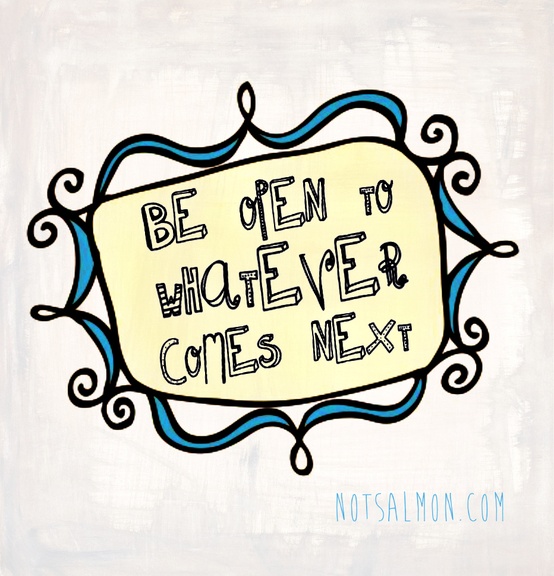 BE OPEN TO
WHATEVER
COMES NEXT
NOTSALMON.COM